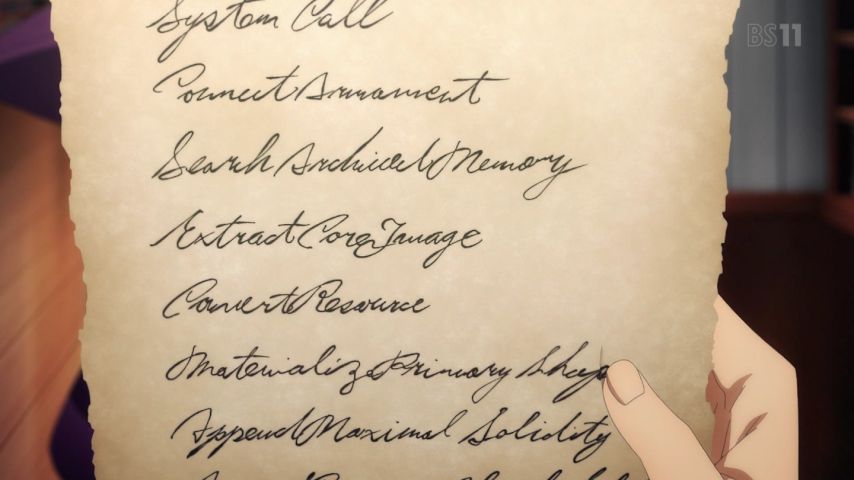 System Call
BS11
Connect Armament
Search Archived Memory
Extract Core Image
Convert Resource
Materialize Primary Shap
Append Maximal Solidity